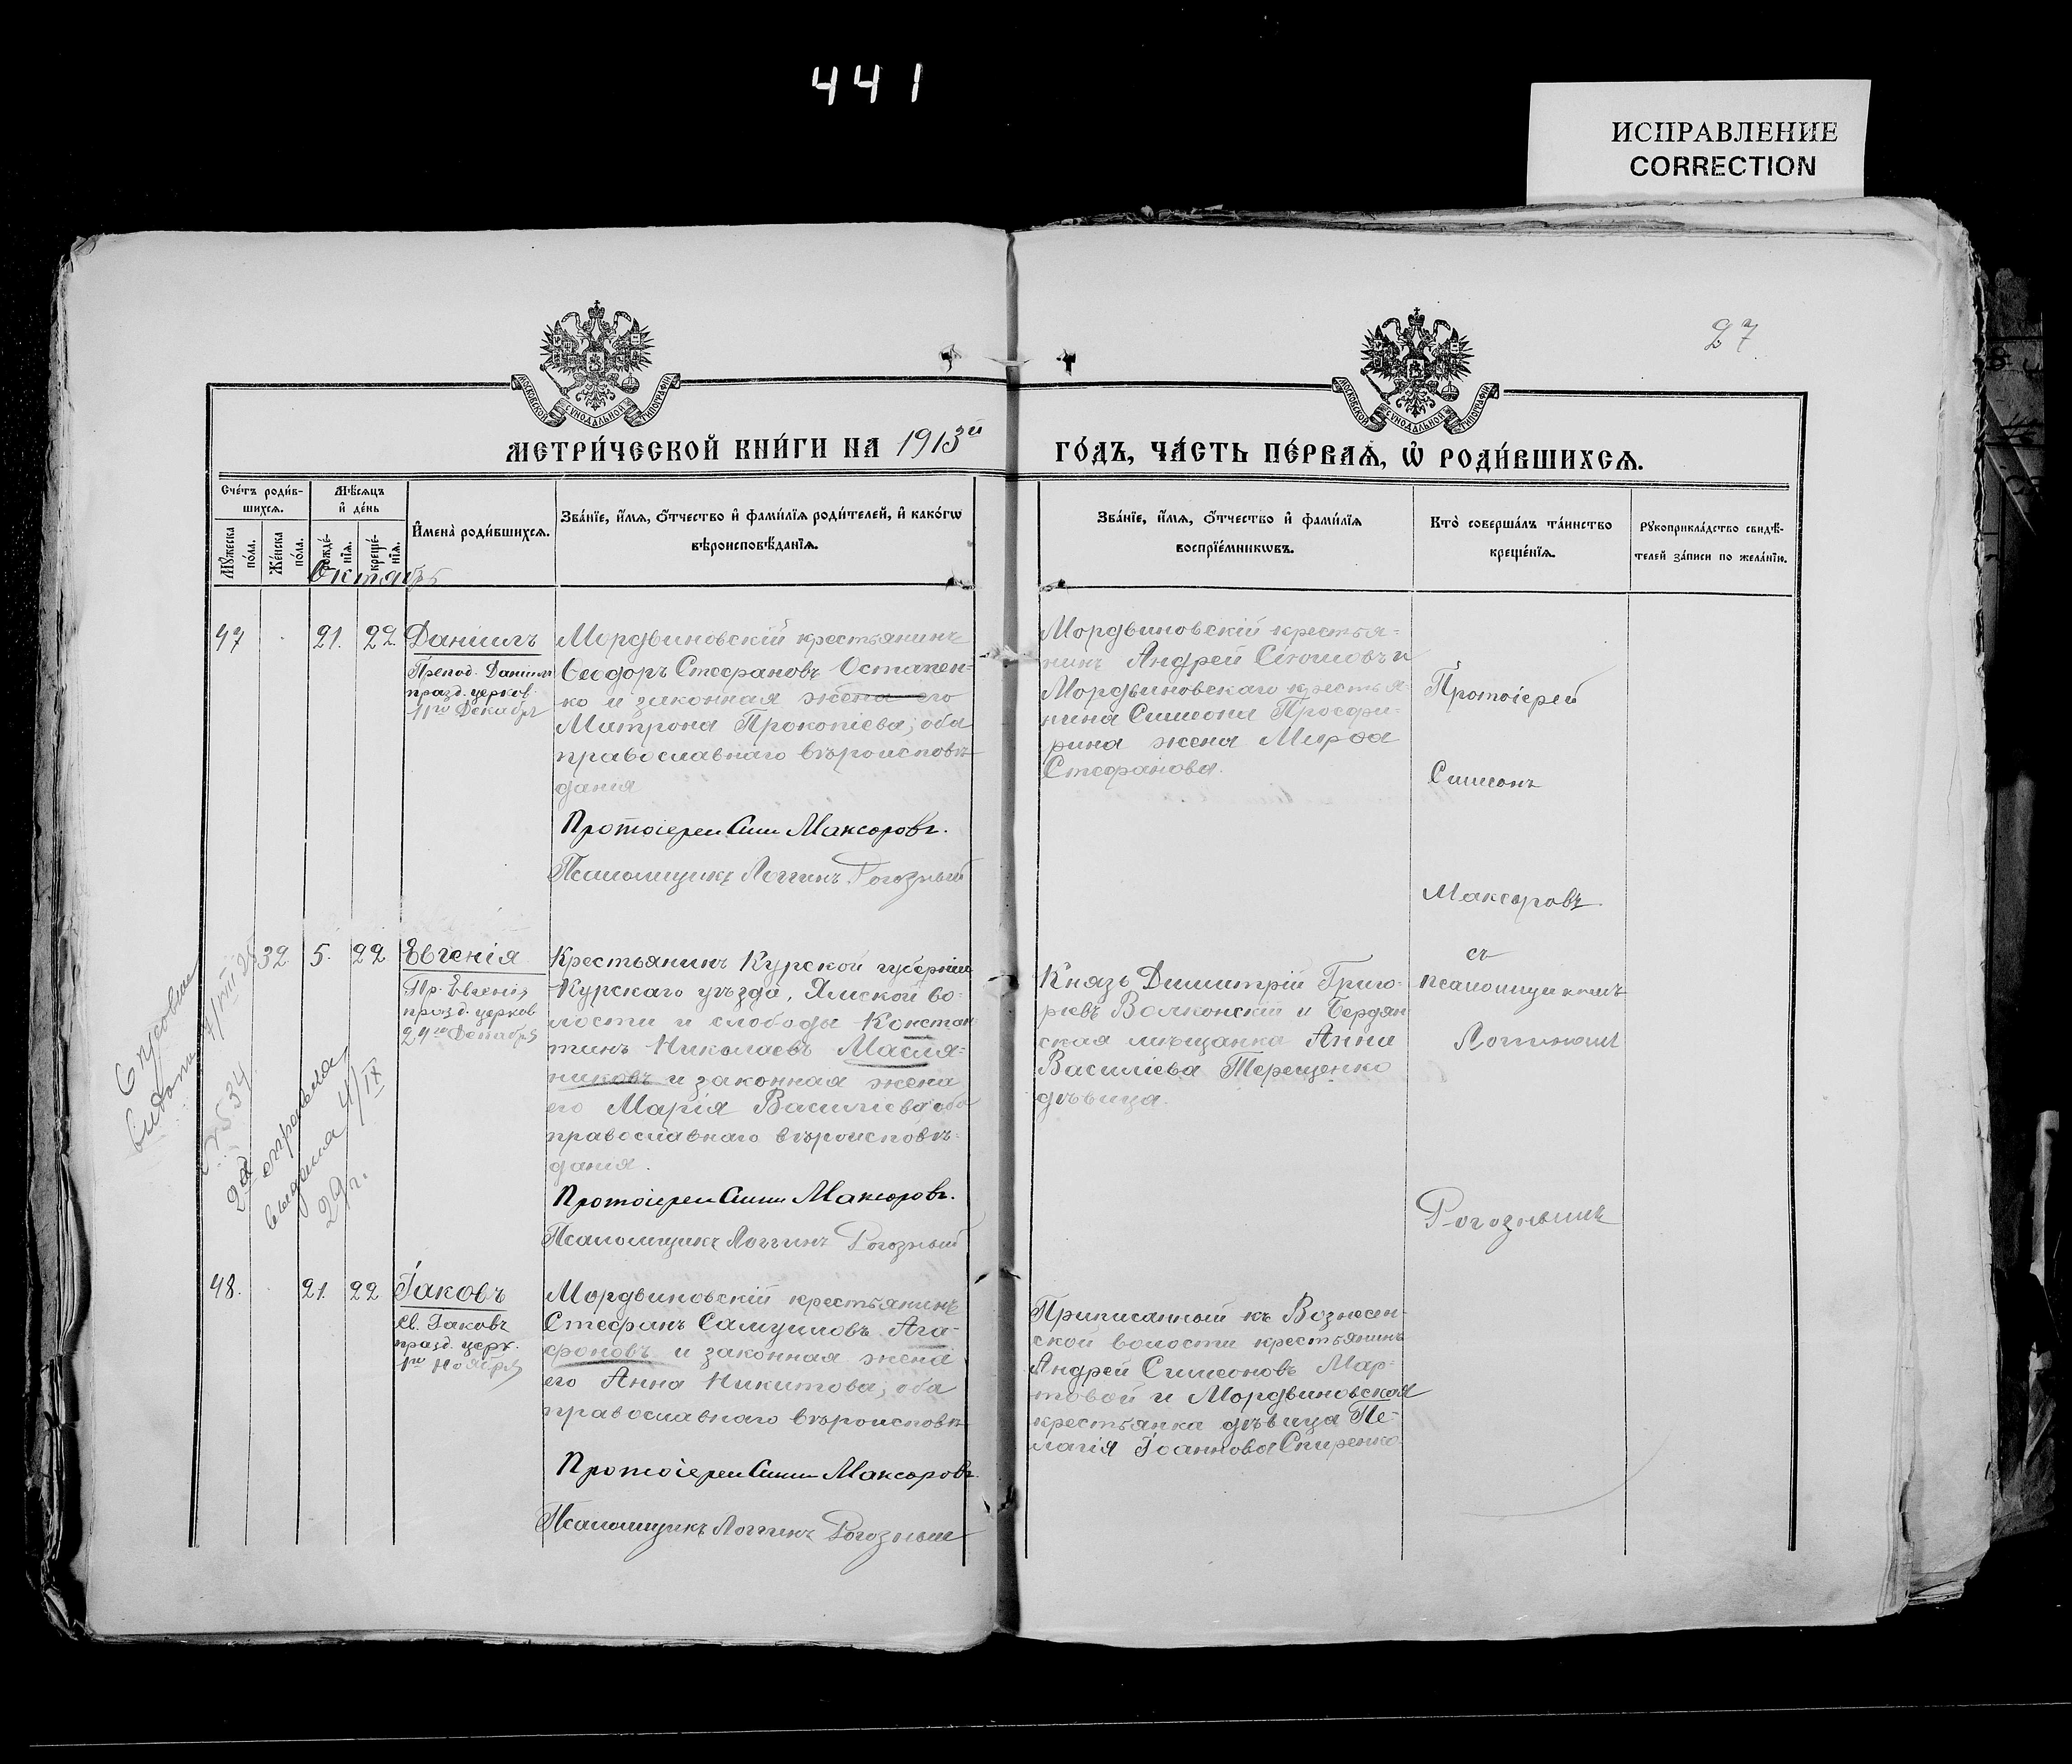 441
ИСПРАВЛЕНИЕ
CORRECTION
27
МОСКОВСКОЙ СѴНОДАЛЬНОЙ ТИПОГРАФІИ
МОСКОВСКОЙ СѴНОДАЛЬНОЙ ТИПОГРАФІИ
МЕТРИ́ЧЕСКОЙ КНИ́ГИ НА 1913й
ГО́ДЪ, ЧА́СТЬ ПЕ́РВАѦ, Ѡ҆ РОДИ́ВШИХСѦ.
Сче́тъ роди́в-
шихсѧ.
Мѹжеска
по́ла.
Же́нска
по́ла.
Мѣ́сѧцъ
и҆ де́нь
рожде́-
нїѧ.
креще́-
нїѧ.
И҆мена̀ роди́вшихсѧ.
Зва́нїе, и҆́мѧ, ѻ҆́тчество и҆ фами́лїѧ роди́телей, и҆ како́гѡ
вѣроисповѣ́данїѧ.
Зва́нїе, и҆́мѧ, ѻ҆́тчество и҆ фами́лїѧ
воспрїе́мникѡвъ.
Кто̀ соверша́лъ та́инство
креще́нїѧ.
Рѹкоприкла́дство свидѣ́-
телей за́писи по жела́нїю.
Октябрь
47 21. 22. Даніилъ
Препод. Даніилъ
празд. церков.
11го Декабря
Мордвиновскій крестьянинъ
Ѳеодоръ Стефановъ Остапен-
ко и законная жена его
Матрона Прокопіева, оба
православнаго вѣроисповѣ-
данія
Протоіерей Сим Максоровъ.
Псаломщикъ Логгинъ Рогозный
Мордвиновскій крестья-
нинъ Андрей и
Мордвиновскаго крестья-
нина Симеона
жена
Стефанова.
Протоіерей
Симеонъ
Максоровъ
съ
псаломщикомъ
Логгиномъ
Рогознымъ
32. 5. 22 Евгенія
Пр. Евгенія
празд. церков
24го Декабря
Крестьянинъ Курской губерніи
Курскаго уѣзда, Ямской во-
лости и слободы Констан
тинъ Николаевъ Масля-
никовъ и законная жена
его Марія Васильева оба
православнаго вѣроисповѣ-
данія.
Протоіерей Сим Максоровъ.
Псаломщикъ Логгинъ Рогозный
Князь Димитрій Григо-
рьевъ Волконскій и Бердян
ская мѣщанка Анна
Василіева Терещенко
дѣвица.
выдана
2я
выдана 4/IX
29 г.
48. 21. 22 Іаковъ
Св. Іаковъ
празд. церк.
1го Ноября
Мордвиновскій крестьянинъ
Стефанъ Самуиловъ Ага-
фоновъ и законная жена
его Анна Никитова, оба
православнаго вѣроисповѣ-
Протоіерей Сим Максоровъ.
Псаломщикъ Логгинъ Рогозный
Приписанный къ Вознесен-
ской волости крестьянинъ
Андрей Симеоновъ Мар-
товой и Мордвиновская
крестьянка дѣвица Пе-
лагія Іоаннова Спиренко